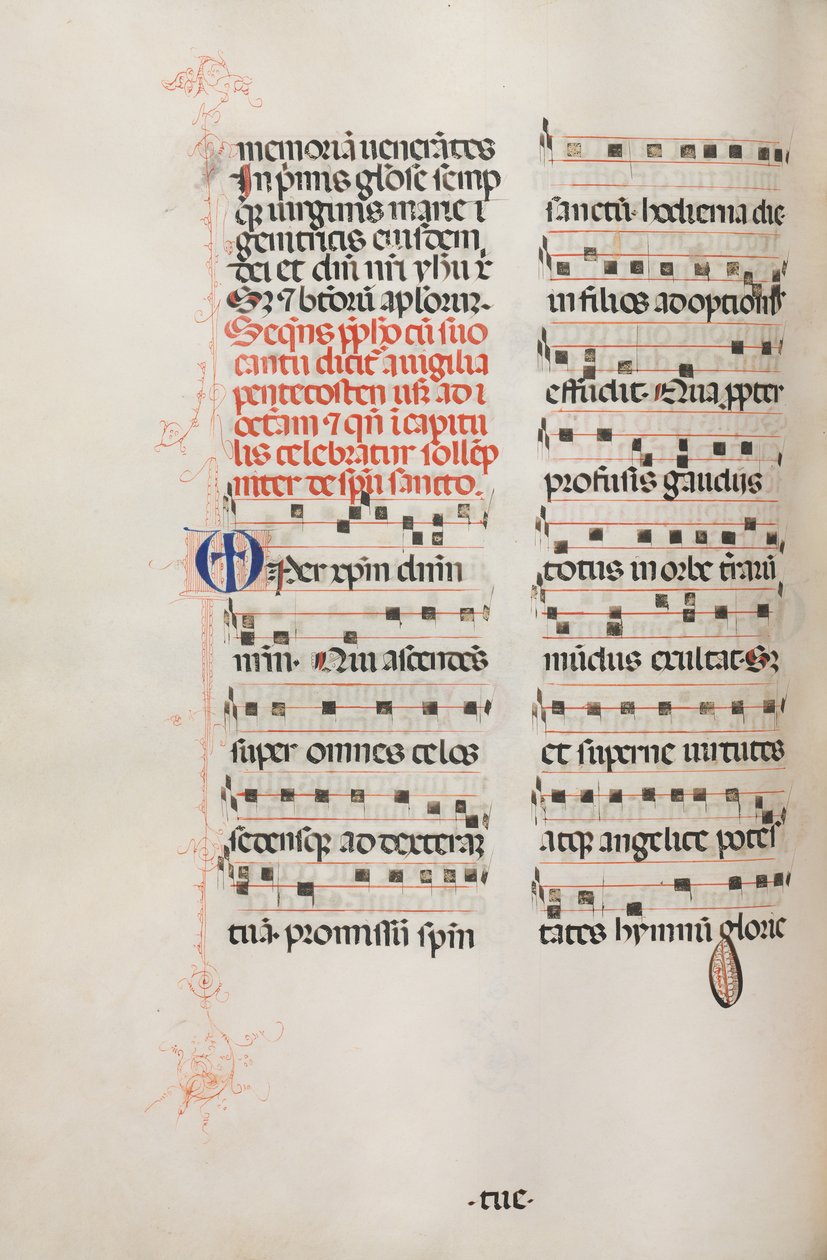 memoriā uenerātes
In p̄mis glōse semp
q̄ uirginis marie ⁊
genitricis eiusdem
dei et dn̄i nr̄i yh̄u x̄
Sꝫ ⁊ btōrū aplōruꝫ.
Seq̄ns p̄phō cū suo
cantu dicit̄ a uigilia
pentecosten usꝫ ad ı
octam ⁊ qn̄ ı capitu
lis celebratur sollēp
niter de sp̄u sancto.
Per xp̄m dn̄m
nr̄m. Qui ascendēs
super omnes celos
sedensqꝫ ad dexteraꝫ
tuā. promissū spm
sanctū. hodierna die
in filios adoptionis
effudit. Qua ꝓpter
profusis gaudiis
totus in orbe t̄rarū
mūdus exultat. Sꝫ
et superne uirtutes
atqꝫ angelice potes
tates hymnū glorie
.tue.